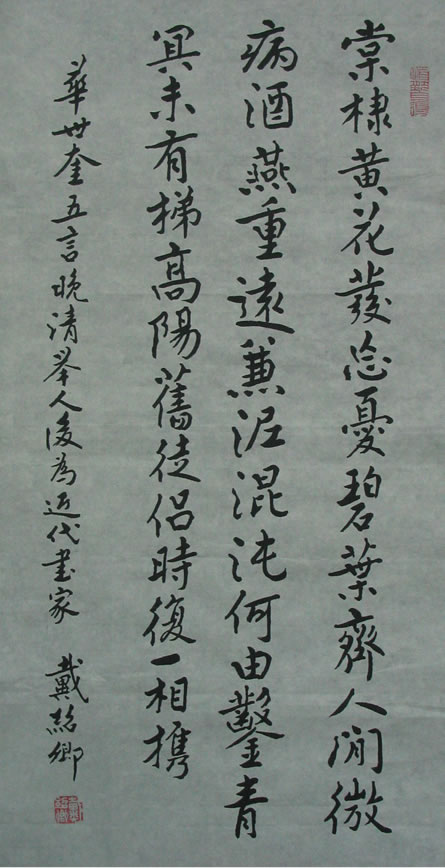 棠棣黄花發忘憂碧葉齊人閒微
病酒燕重遠蒹泥混沌何由鑿青
冥未有梯高陽舊徒侣時復一相携
華世奎五言晚清举人後為近代書家 戴紹卿